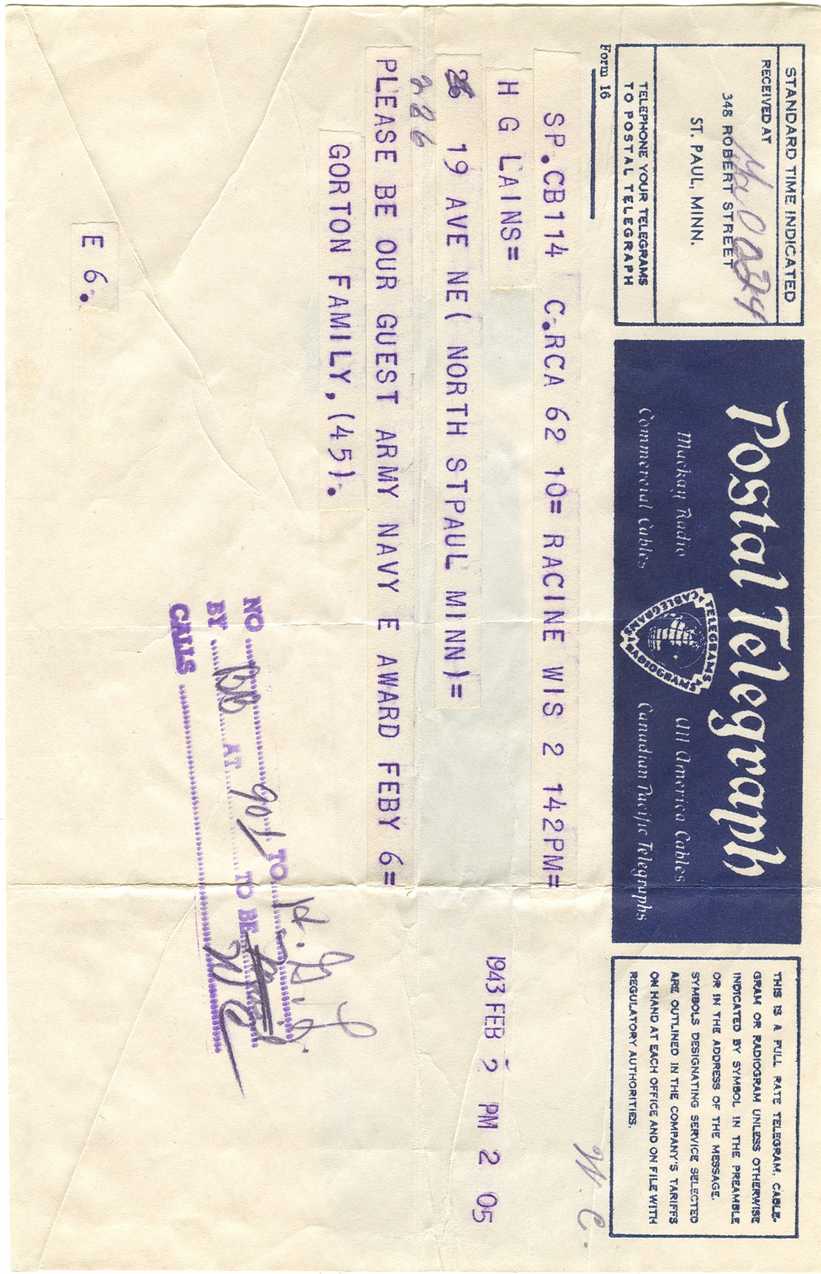 STANDARD TIME INDICATED
RECEIVED AT
348 ROBERT STREET
ST. PAUL, MINN.
TELEPHONE YOUR TELEGRAMS
TO POSTAL TELEGRAPH
Form 16
Postal Telegraph
Mackay Radio
All America Cables
Commercial Cables
Canadian Pacific Telegraphs
TELEGRAMS
CABLEGRAMS
RADIOGRAMS
THIS IS A FULL RATE TELEGRAM, CABLE-
GRAM OR RADIOGRAM UNLESS OTHERWISE
INDICATED BY SYMBOL IN THE PREAMBLE
OR IN THE ADDRESS OF THE MESSAGE.
SYMBOLS DESIGNATING SERVICE SELECTED
ARE OUTLINED IN THE COMPANY'S TARIFFS
ON HAND AT EACH OFFICE AND ON FILE WITH
REGULATORY AUTHORITIES.
W.C.
SP.CB114 C.RCA 62 10= RACINE WIS 2 142PM=
1943 FEB 2 PM 2 05
H G LAINS=
19 AVE NE( NORTH STPAUL MINN)=
286
PLEASE BE OUR GUEST ARMY NAVY E AWARD FEBY 6=
GORTON FAMILY,(45).
NO TO H.G.L.
BY AT 901 TO BE
CALLS WC
E 6.